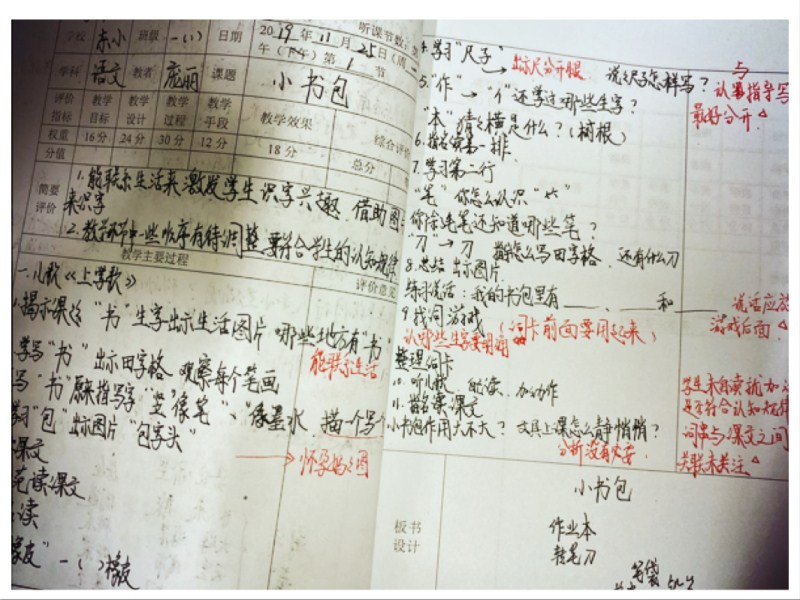 学校 东小 班级 一(1) 日期 2019年11月25日(周一
听课节数
午(下午)第1节
学科 语文 教者 庞丽 课题 小书包
评价指标 教学目标 教学设计 教学过程 教学手段 教学效果 综合评
权重 16分 24分 30分 12分 18分 总分
分值
简要评价
1.能联系生活来激发学生识字兴趣,借助图
来识字
2.教学环节中一些顺序有待调整,要符合学生的认知规律
教学主要过程 评价意见
一.儿歌《上学歌》
揭示课 "书"生字出示生活图片 哪些地方有"书"
能联系生活
学写"书" 出示田字格 观察每个笔画
写"书" 指写字 像笔 "、"像墨水,描一个写个
"包"出示图片 "包字头"
怀孕妈妈图
课文
范读课文
读
橡皮"—( )橡皮
4.学习"尺子" 出示尺分开腿 说说尺子怎样写?
与
认真指导写
最好分开
5."作"→"亻"还学过哪些生字?
"本"猜猜横是什么?(树根)
6.指名读第一排
7.学习第二行
"笔" 你怎么认识"⺮"
你除毛笔还知道哪些笔?
"刀"→刀 怎么写田字格,还有什么刀
8.总结 出示图片
练习说话:我的书包里有____、____和____
说话应放
游戏后面
9.找词游戏 (词卡前面要用起来)
认哪些生字要明确
整理词卡
10.听儿歌 跟读 加动作
11.指名读课文
学生来自读就加
是否符合认知规律
词串与课文之间
关联未关注
小书包作用大不大?文具上课怎么静悄悄?
分析没有必要
板书设计
小书包
作业本
转笔刀
笔袋